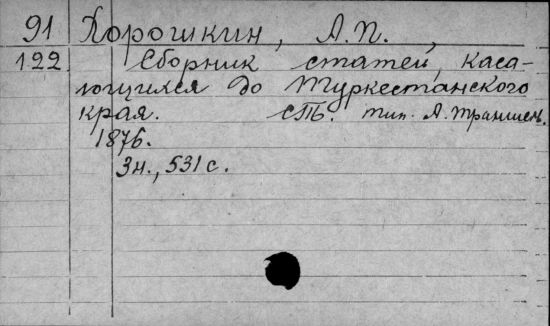 91 Хорошкин, А.П.
122 Сборник статей, каса-
ющихся до Туркестанского
края. СПб. тип. А. Траншель.
1876.
3н., 531 с.